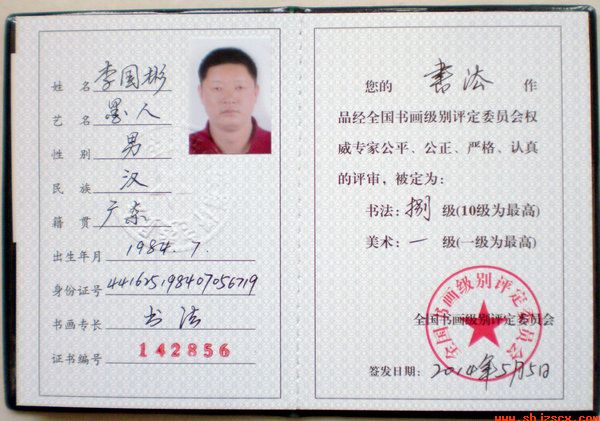 姓名 李国彬
艺名 墨人
性别 男
民族 汉
籍贯 广东
出生年月 1984.7.
身份证号 441625198407056719
书画专长 书法
证书编号 142856
您的 书法 作
品经全国书画级别评定委员会权
威专家公平、公正、严格、认真
的评审,被定为:
书法:捌 级(10级为最高)
美术:一 级(一级为最高)
全国书画级别评定委员会
全国书画级别评定委员会
签发日期:2014年5月5日
www.shjzscx.com